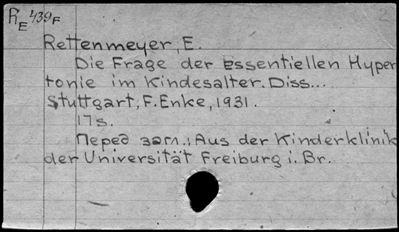 RE 439F
Rettenmeyer, E.
Die Frage der Essentiellen Hyper
tonie im Kindesalter. Diss...
Stuttgart, F. Enke, 1931.
17s.
Перед загл.: Aus der Kinderklinik
der Universität Freiburg i. Br.